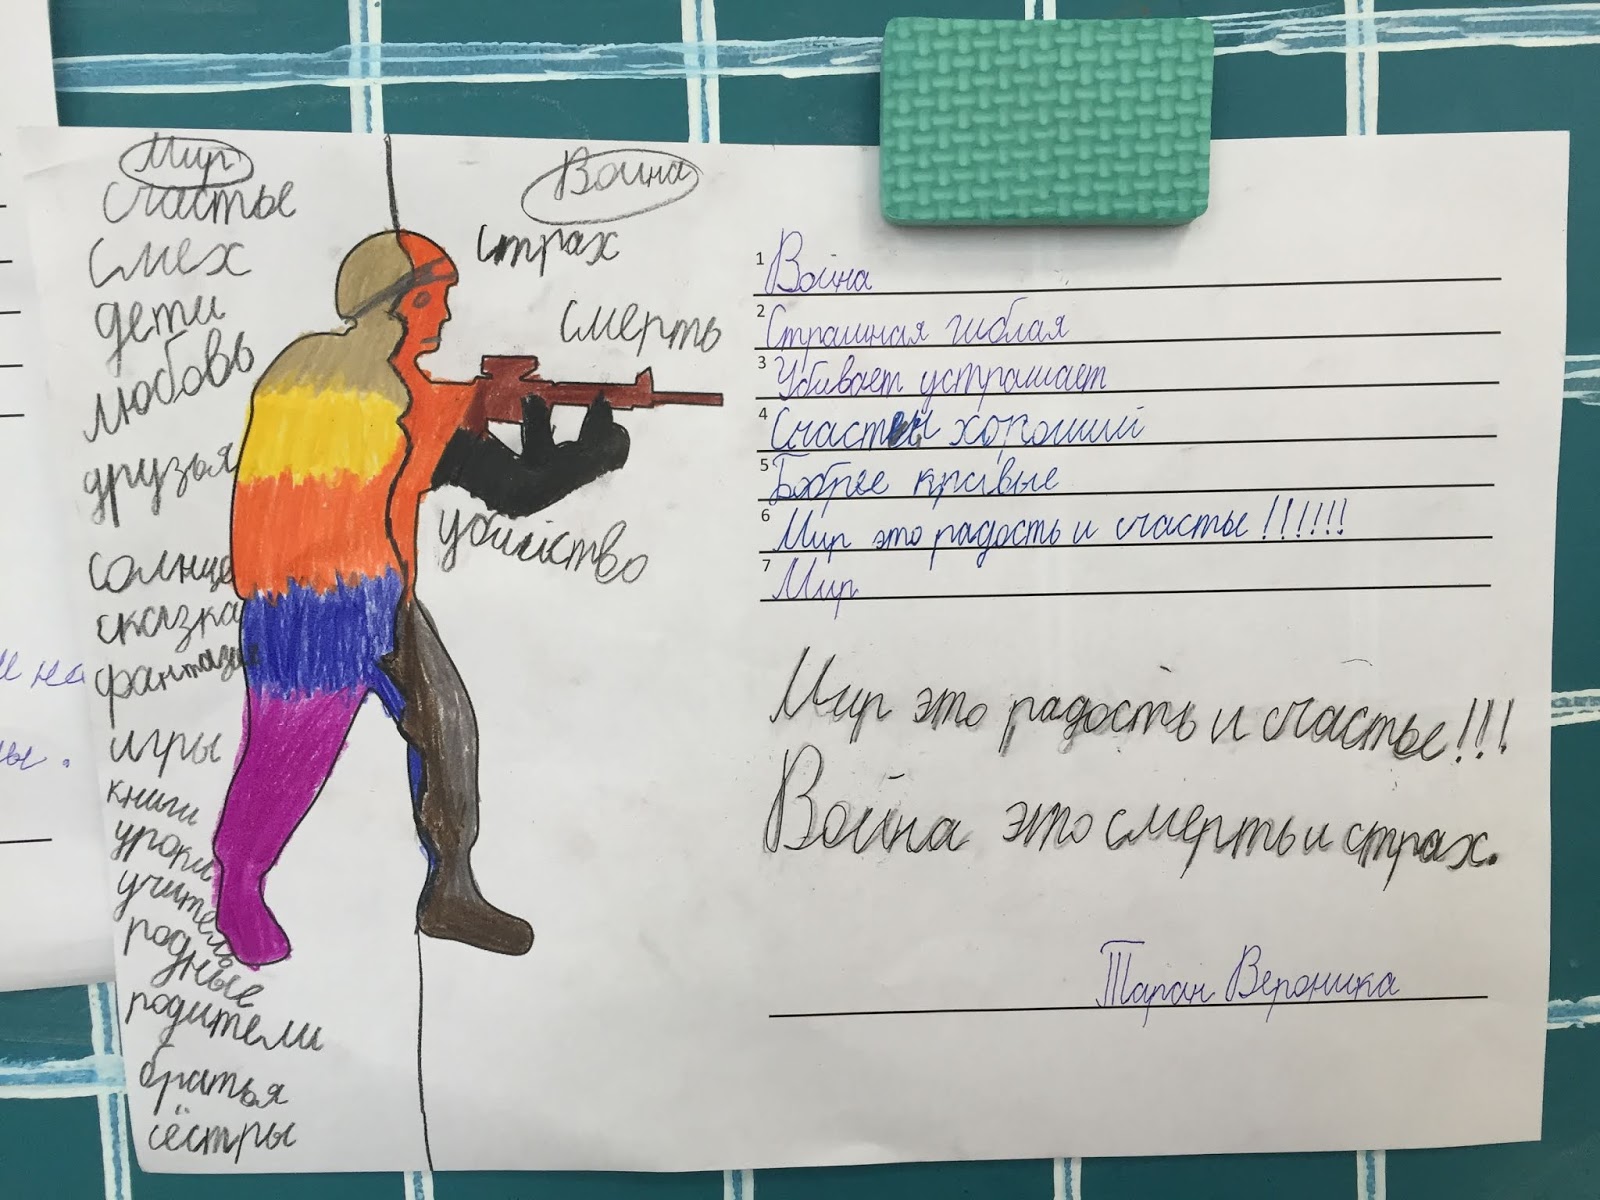 Мир
счастье
смех
дети
любовь
друзья
солнце
сказка
фантазии
игры
книги
уроки
учитель
родные
родители
братья
сёстры
Война
страх
смерть
убийство
1 Война
2 Страшная гиблая
3 Убивает устрашает
4 хороший
5
6 Мир это радость и счастье !!!!!!
7 Мир
Мир это радость и счастье!!!
Война это смерть и страх.
Таран Вероника
и на
ы.